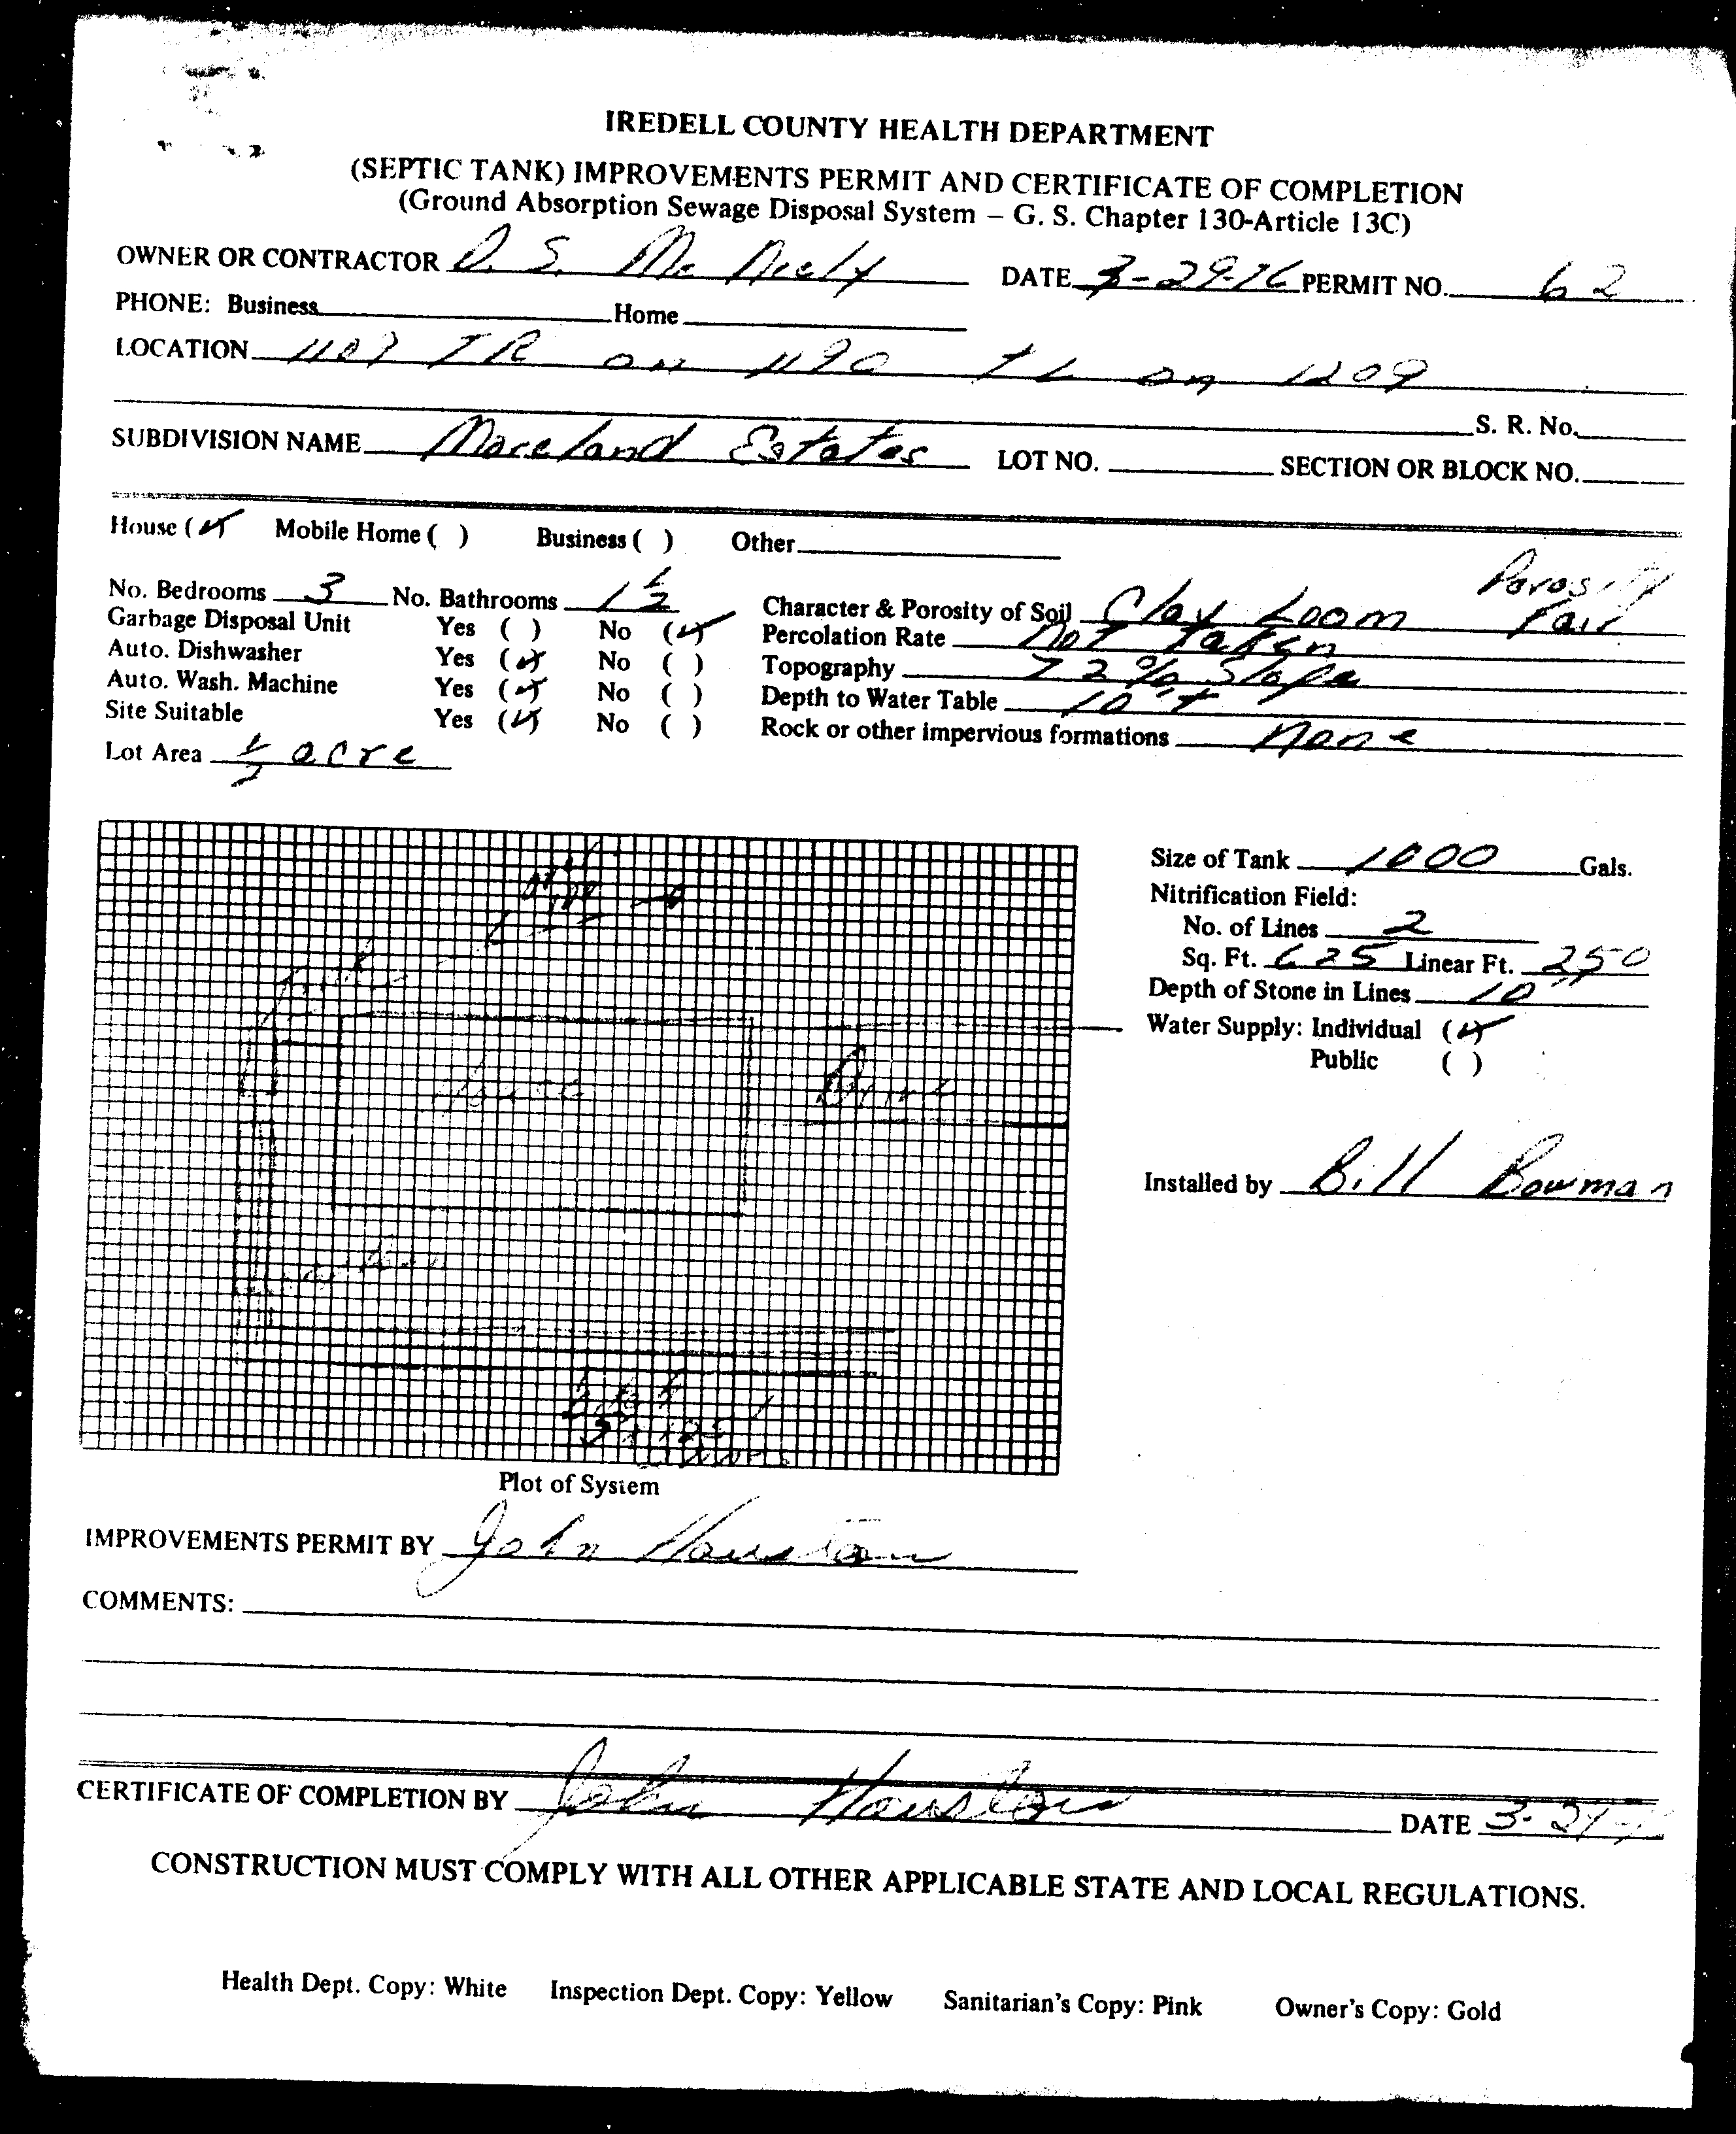 IREDELL COUNTY HEALTH DEPARTMENT
(SEPTIC TANK) IMPROVEMENTS PERMIT AND CERTIFICATE OF COMPLETION
(Ground Absorption Sewage Disposal System – G. S. Chapter 130-Article 13C)
OWNER OR CONTRACTOR D. S. Mc Neely DATE 3-29-76 PERMIT NO. 62
PHONE: Business Home
LOCATION 1109 TR on 1190 TL on 1209
S. R. No.
SUBDIVISION NAME Moreland Estates LOT NO. SECTION OR BLOCK NO.
House (✓) Mobile Home ( ) Business ( ) Other
Porosity
No. Bedrooms 3 No. Bathrooms 1 1/2 Character & Porosity of Soil Clay Loam Fair
Garbage Disposal Unit Yes ( ) No (✓) Percolation Rate Not Taken
Auto. Dishwasher Yes (✓) No ( ) Topography 72% Slope
Auto. Wash. Machine Yes (✓) No ( ) Depth to Water Table 10'+
Site Suitable Yes (✓) No ( ) Rock or other impervious formations None
Lot Area 1/2 acre
Size of Tank 1000 Gals.
Nitrification Field:
No. of Lines 2
Sq. Ft. 625 Linear Ft. 250
Depth of Stone in Lines 10"
Water Supply: Individual (✓)
Public ( )
House
Drive
Installed by Bill Bowman
Plot of System
IMPROVEMENTS PERMIT BY John Houston
COMMENTS:
CERTIFICATE OF COMPLETION BY John Houston DATE 3-
CONSTRUCTION MUST COMPLY WITH ALL OTHER APPLICABLE STATE AND LOCAL REGULATIONS.
Health Dept. Copy: White Inspection Dept. Copy: Yellow Sanitarian's Copy: Pink Owner's Copy: Gold